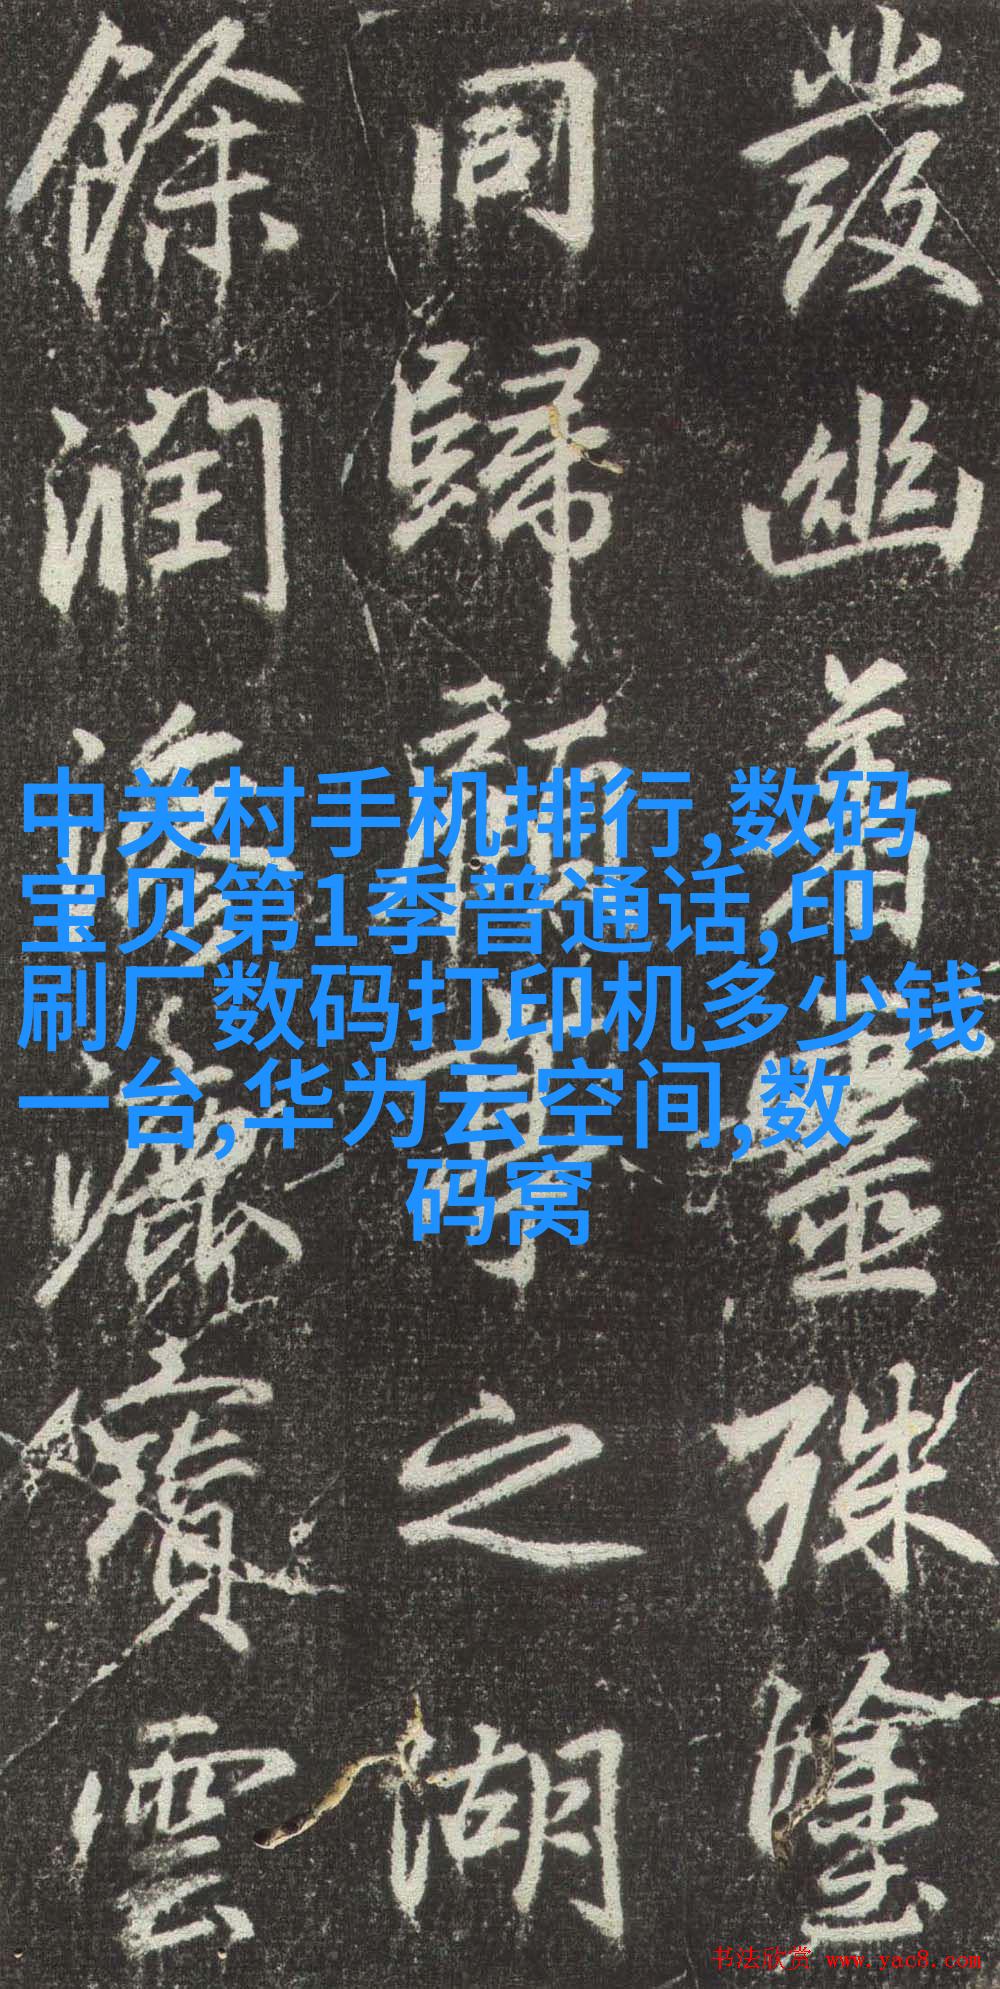 發幽殊塗
同歸之湖
餘潤雲
中关村手机排行,数码
宝贝第1季普通话,印
刷厂数码打印机多少钱
一台,华为云空间,数
码窝
书法欣赏 www.yac8.com